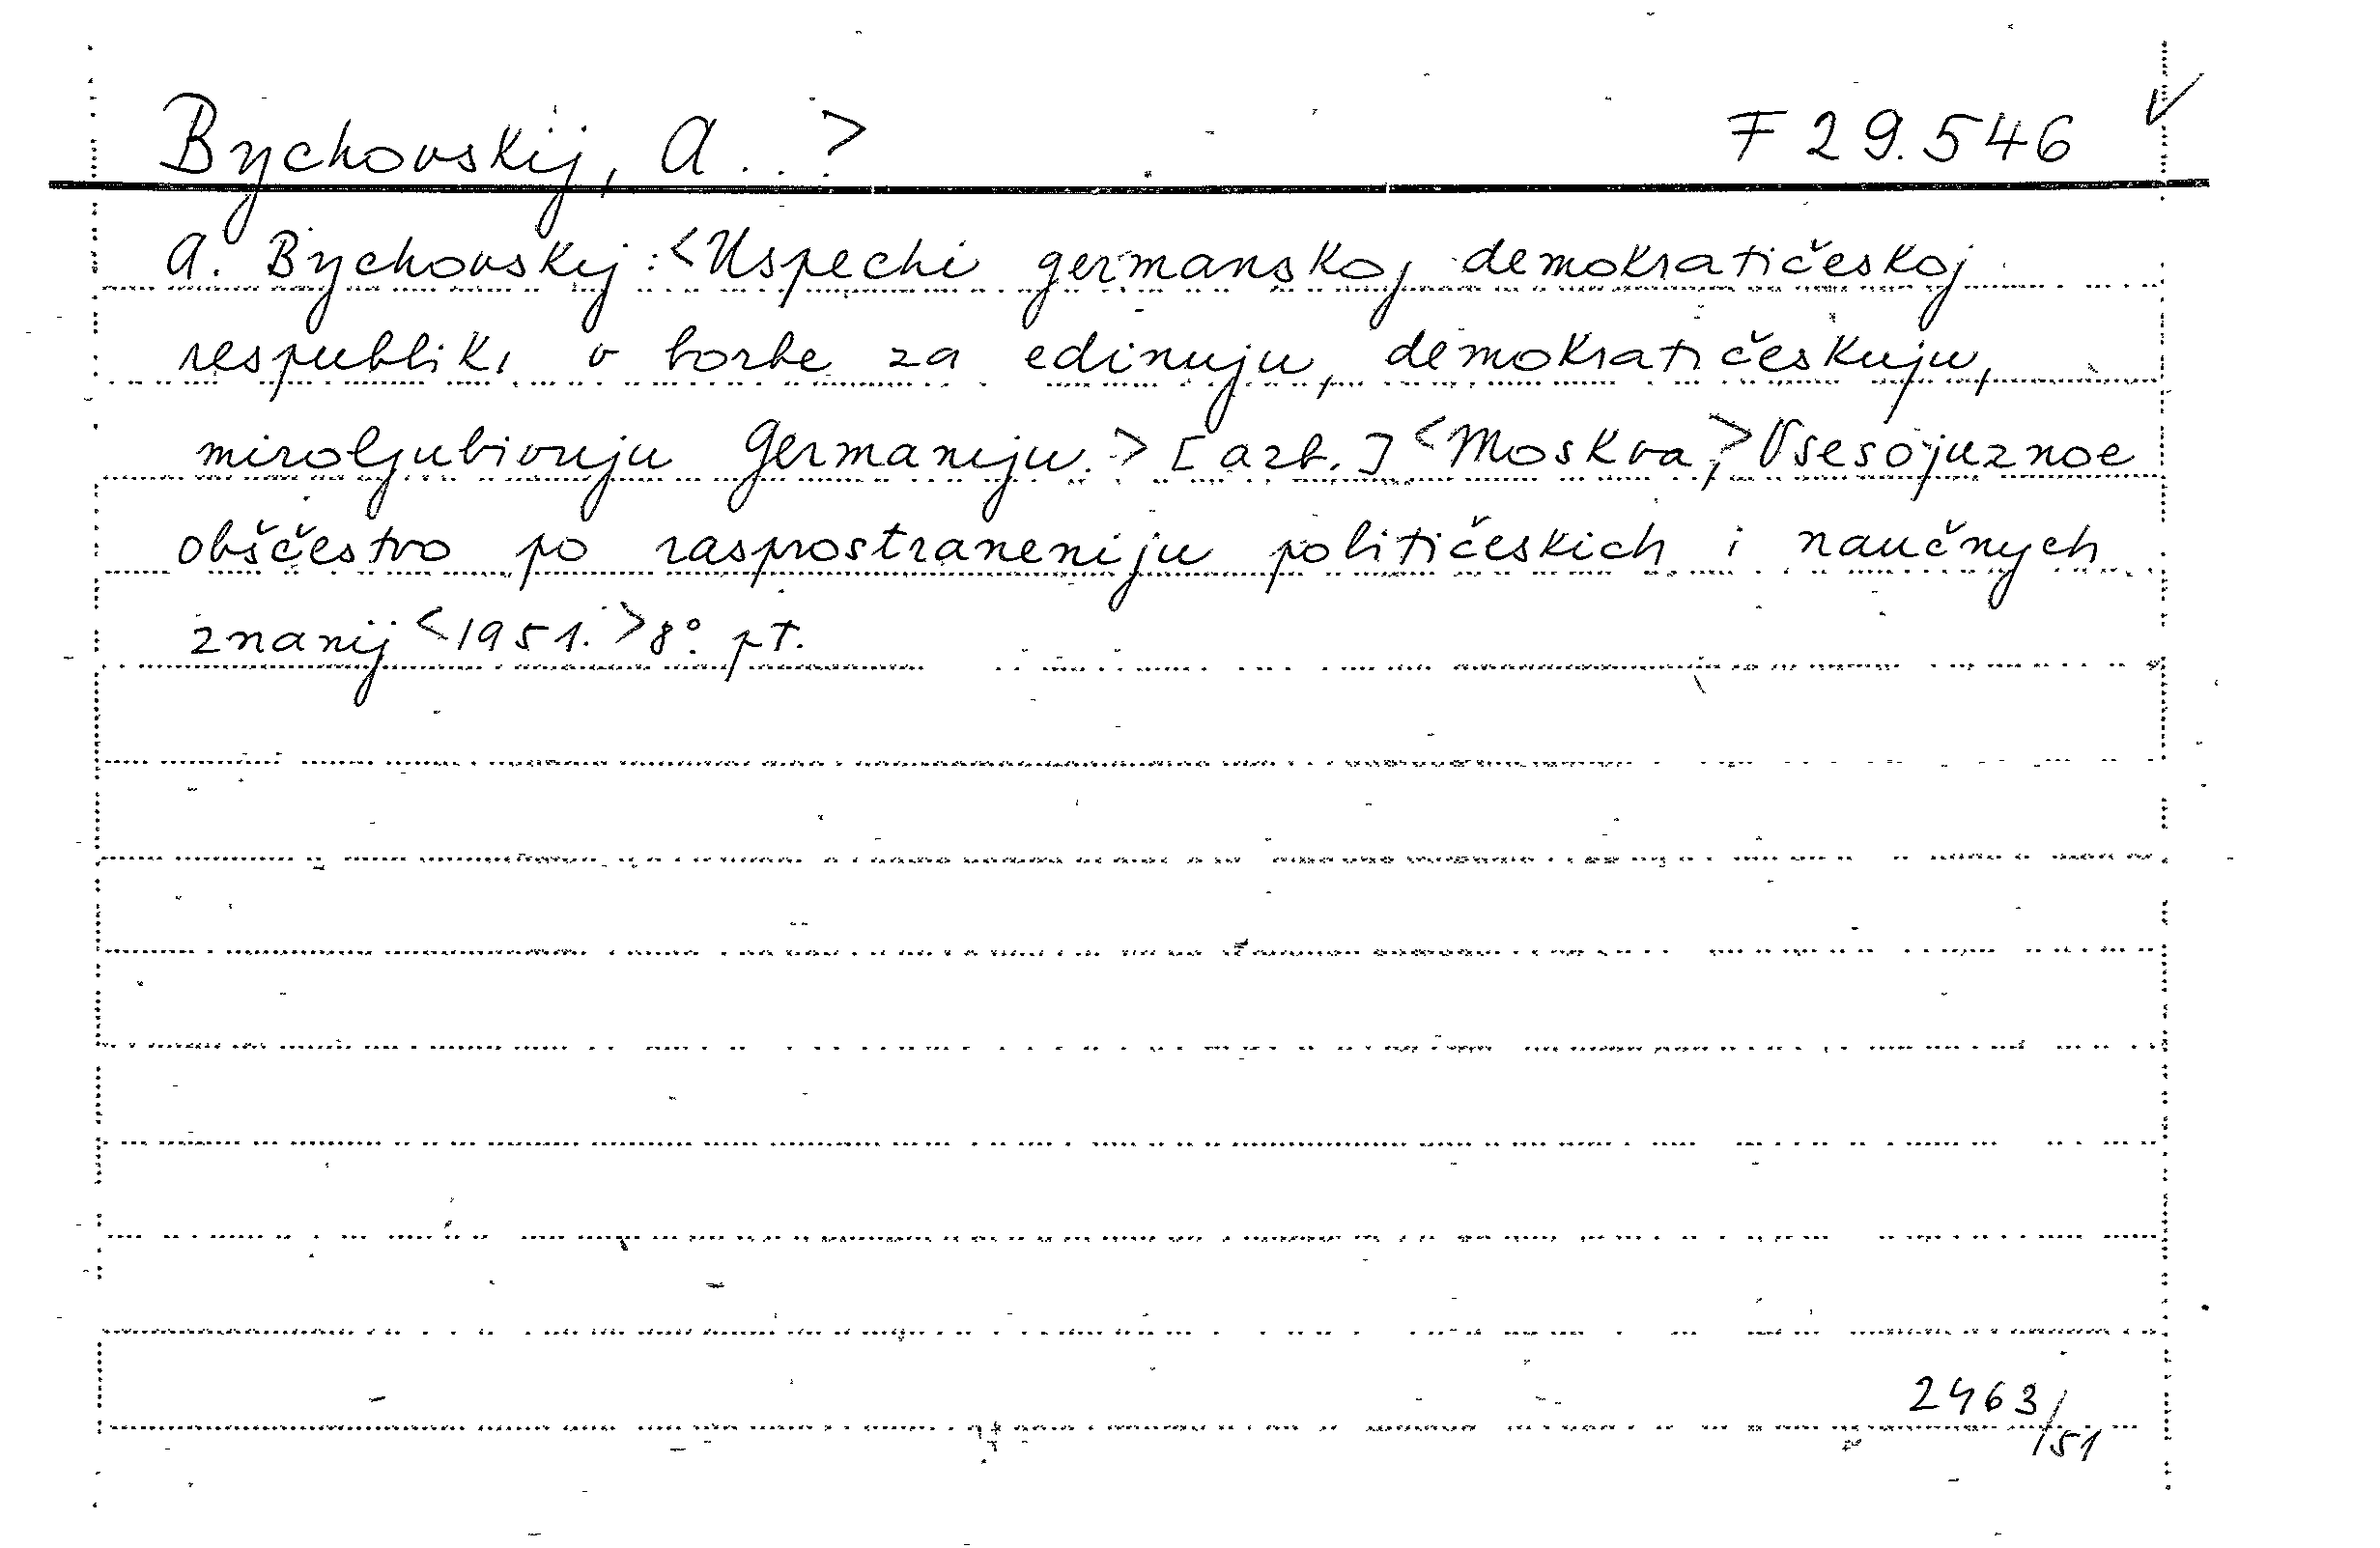 Bychovskij, A..? F 29.546 ✓
A. Bychovskij: <Uspechi germanskoj demokratičeskoj
respubliki v borbe za edinuju, demokratičeskuju,
miroljubivuju Germaniju.> [azb.] <Moskva,> Vsesojuznoe
obščestvo po rasprostraneniju političeskich i naučnych
znanij <1951.> 8°. pT.
2463/
/51